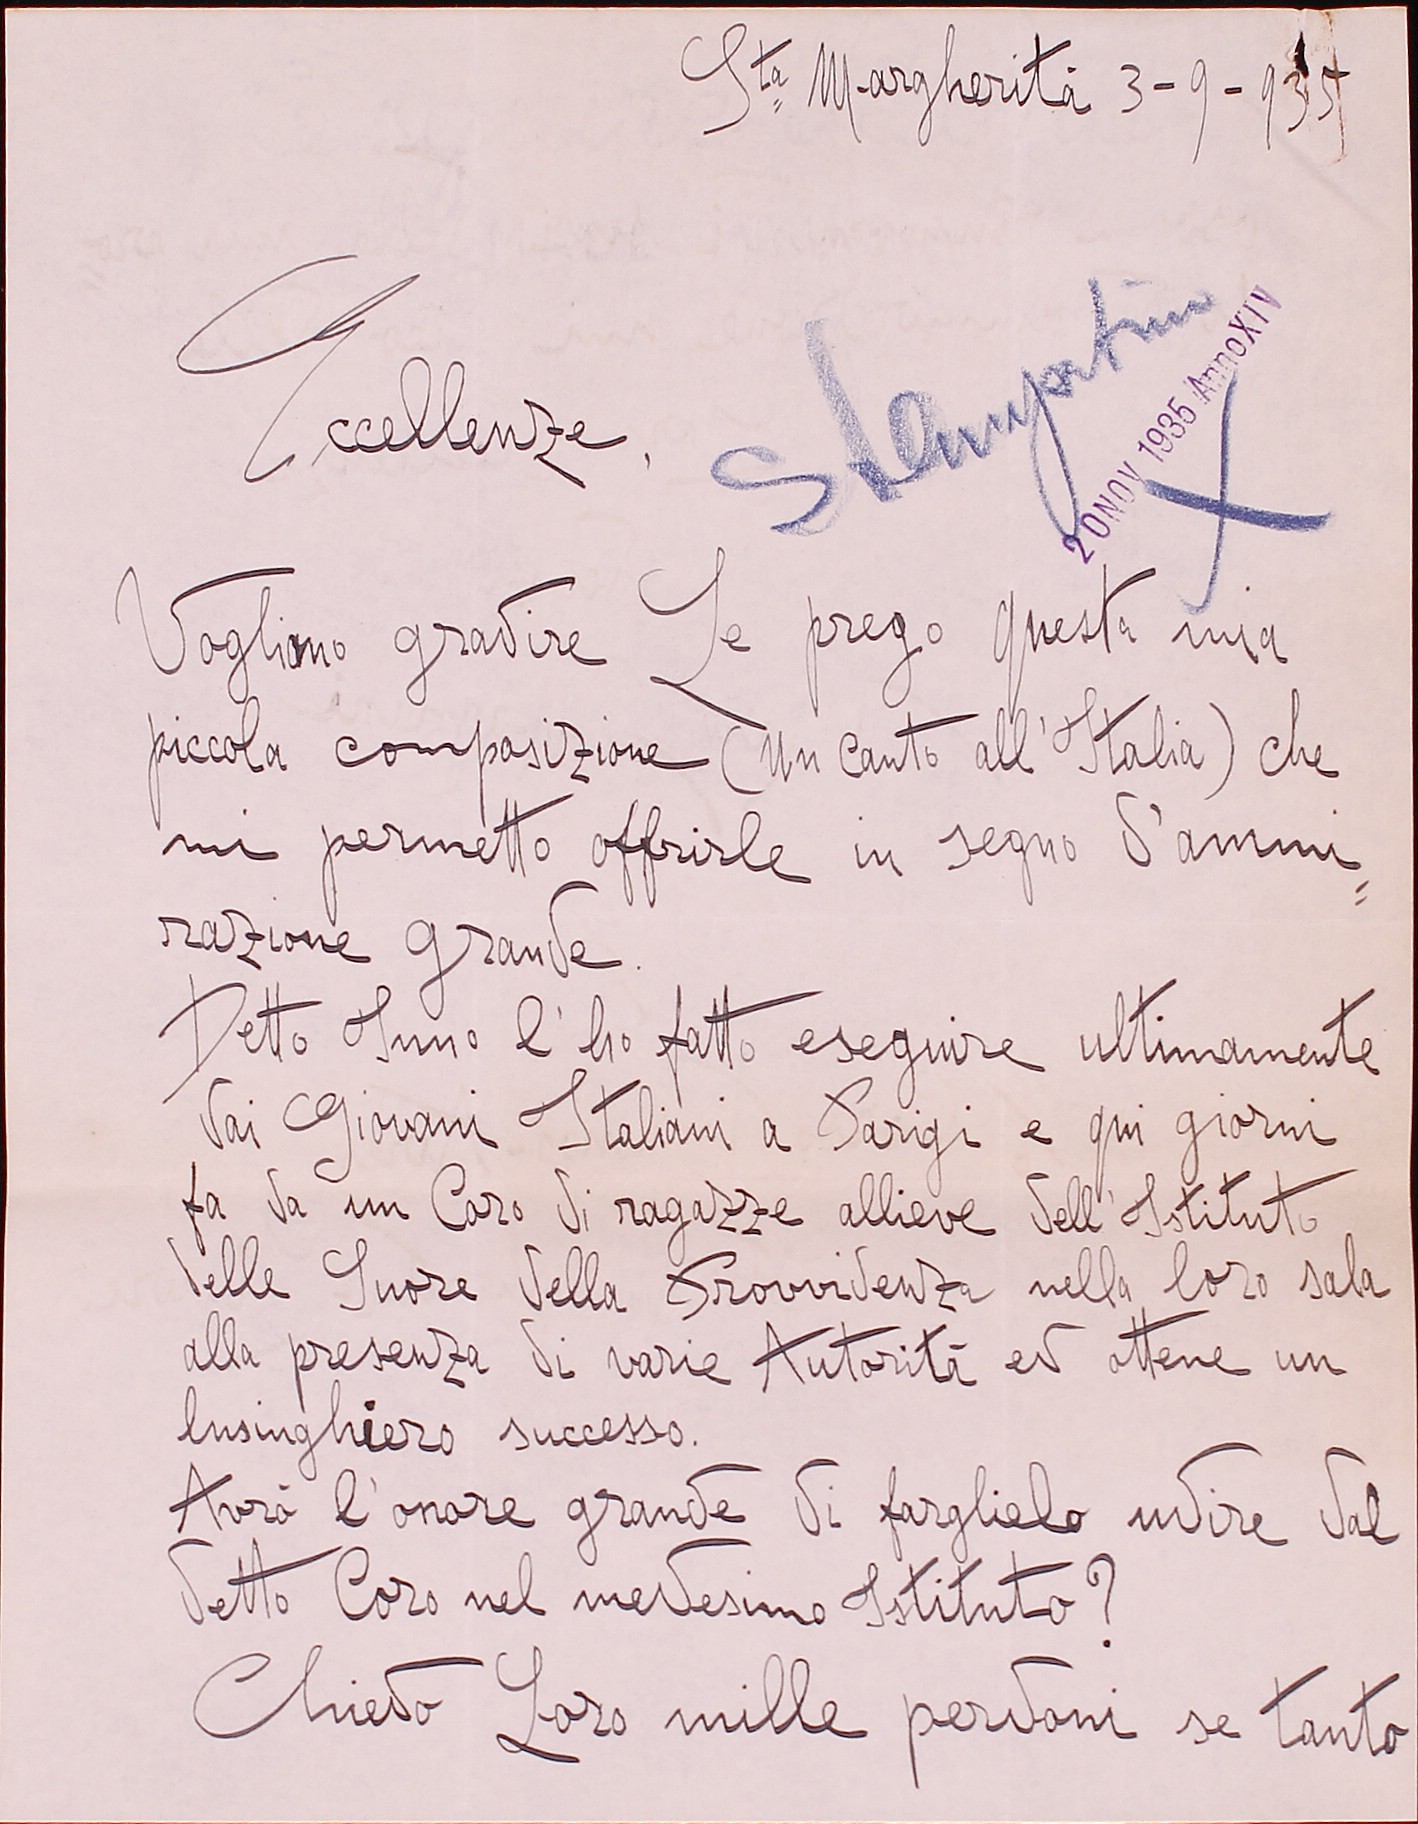 Sta Margherità 3-9-935
Eccellenze,
20 NOV 1935 Anno XIV
Vogliano gradire Le prego questa mia
piccola composizione (un canto all'Italia) che
mi permetto offrirle in segno d'ammi=
razione grande.
Detto Inno l'ho fatto eseguire ultimamente
dai Giovani Italiani a Parigi e qui giorni
fa da un Coro di ragazze allieve dell'Istituto
delle Suore della Provvidenza nella loro sala
alla presenza di varie Autorità ed ottene un
lusinghiero successo.
Avrò l'onore grande di farglielo udire dal
detto Coro nel medesimo Istituto?
Chiedo Loro mille perdoni se tanto